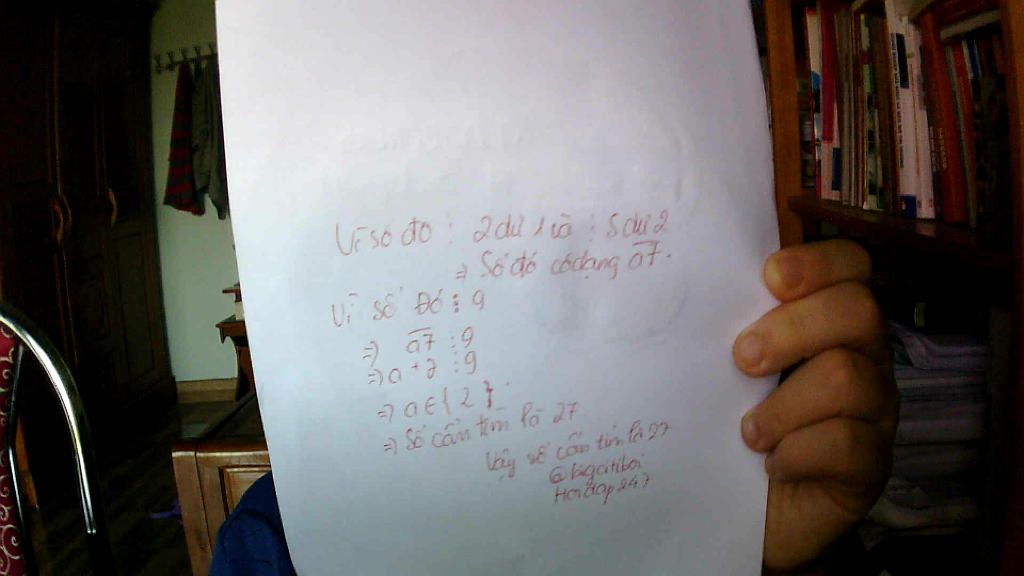 Vì số đó : 2 dư 1 và : 5 dư 2
=> Số đó có dạng a7.
Vì số Đó ⋮ 9
=> a7 ⋮ 9
=> a + 7 ⋮ 9
=> a ∈ { 2 }.
=> Số cần tìm là 27
Vậy số cần tìm là 27
@bigcitiboi
Hoidap247